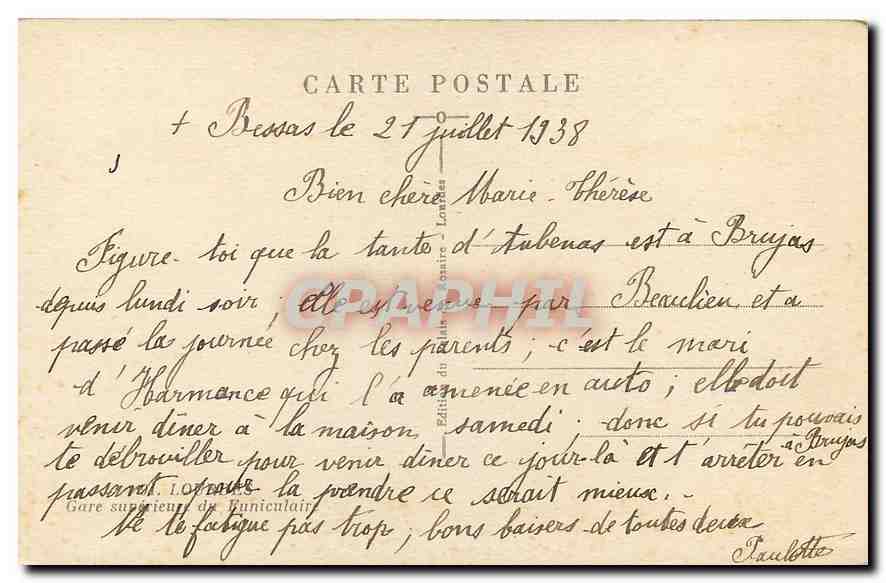 CARTE POSTALE
+ Bessas le 21 juillet 1938
Bien chère Marie-Thérèse
Figure-toi que la tante d'Aubenas est à Brujas
depuis lundi soir ; elle est venue par Beaulieu et a
passé la journée chez les parents ; c'est le mari
d'Harmance qui l'a amenée en auto ; elle doit
venir dîner à la maison samedi. donc si tu pouvais
te débrouiller pour venir dîner ce jour-là et t'arrêter en à Brujas
passant pour la prendre ce serait mieux. -
Ne te fatigue pas trop ; bons baisers de toutes deux
Paulette
LOURDES
Gare supérieure du Funiculaire
Editions du Palais du Rosaire - Lourdes
CPAPHIL